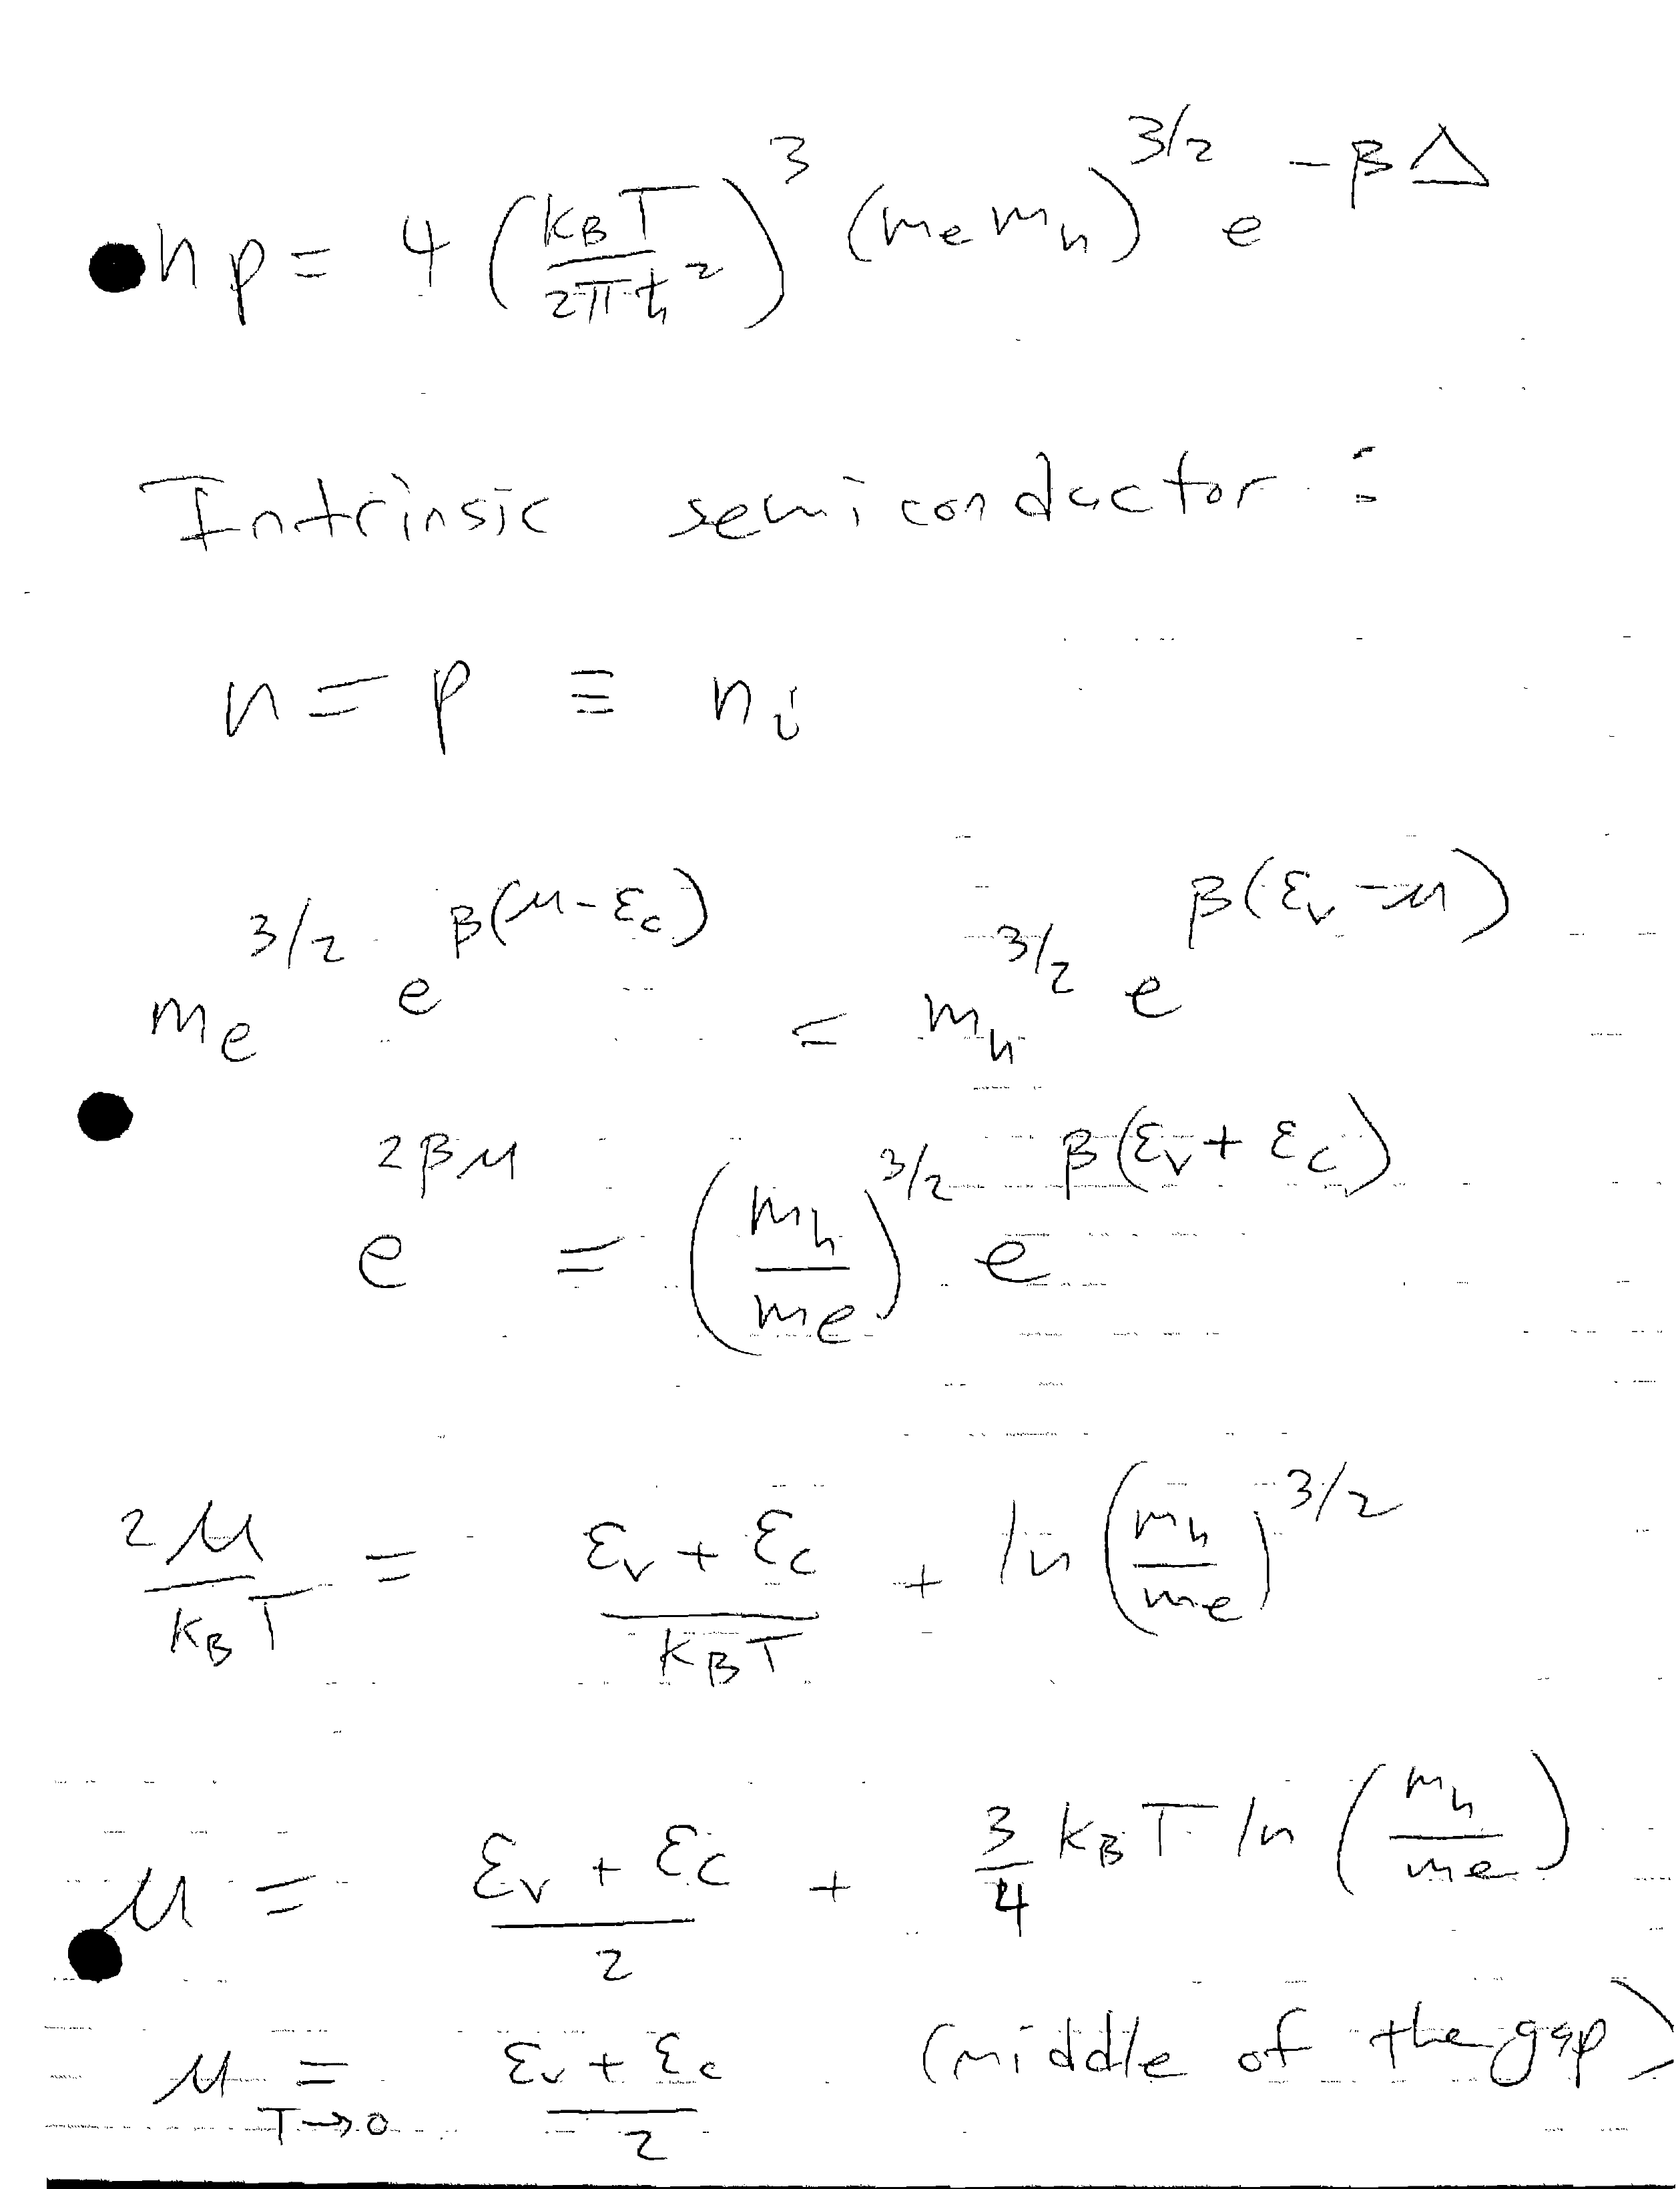 np = 4 (k_B T / 2πħ²)³ (m_e m_h)^{3/2} e^{-βΔ}
Intrinsic semiconductor :
n = p ≡ n_i
m_e^{3/2} e^{β(μ-ε_c)} = m_h^{3/2} e^{β(ε_v-μ)}
e^{2βμ} = (m_h / m_e)^{3/2} e^{β(ε_v+ε_c)}
2μ / k_B T = (ε_v + ε_c) / k_B T + ln (m_h / m_e)^{3/2}
μ = (ε_v + ε_c) / 2 + 3/4 k_B T ln (m_h / m_e)
μ =_{T→0} (ε_v + ε_c) / 2 (middle of the gap)